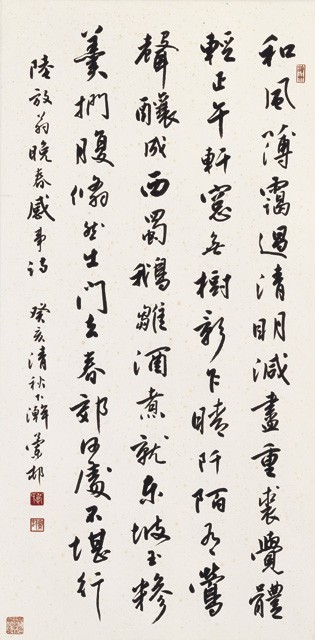 和風薄靄過清明減盡重裘覺體
輕正午軒窗無樹影乍晴阡陌有鶯
聲釀成西蜀鵝雛酒煮就東坡玉糝
羹捫腹翛然出門去春郊何處不堪行
陸放翁晚春感事詩 癸亥清秋下澣